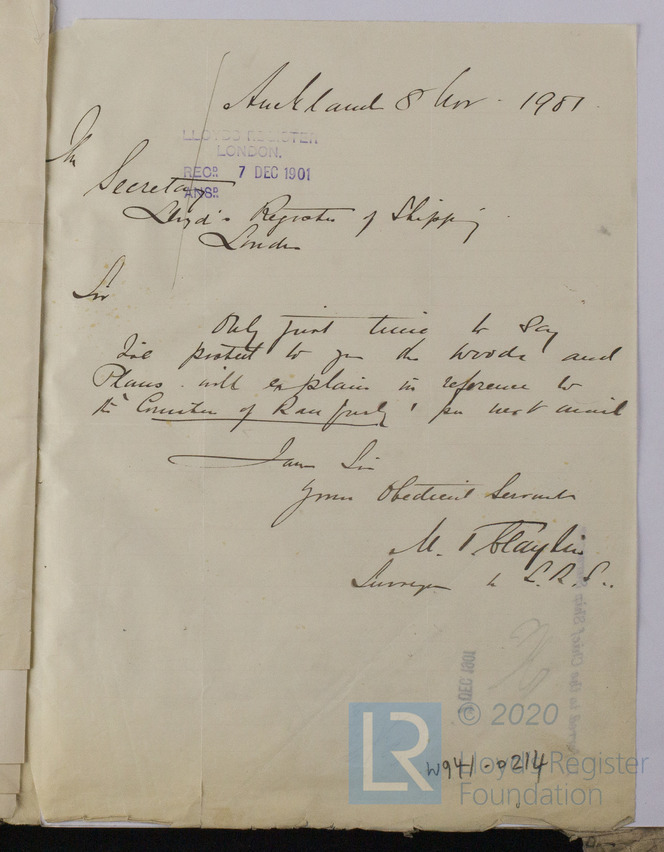 Auckland 8 Nov. 1901
LLOYDS REGISTER
LONDON.
RECD. 7 DEC 1901
ANSD.
The
Secretary
Lloyd's Register of Shipping
London
Sir
Only just time to say
to you the and
Plans. will explain in reference to
the "Countess of Ranfurly" per next mail
I am Sir
Your Obedient Servant
M. T. Clayton
Surveyor to L.R.S..
DEC 1901
W941-0214
LR
© 2020
Lloyd's Register
Foundation